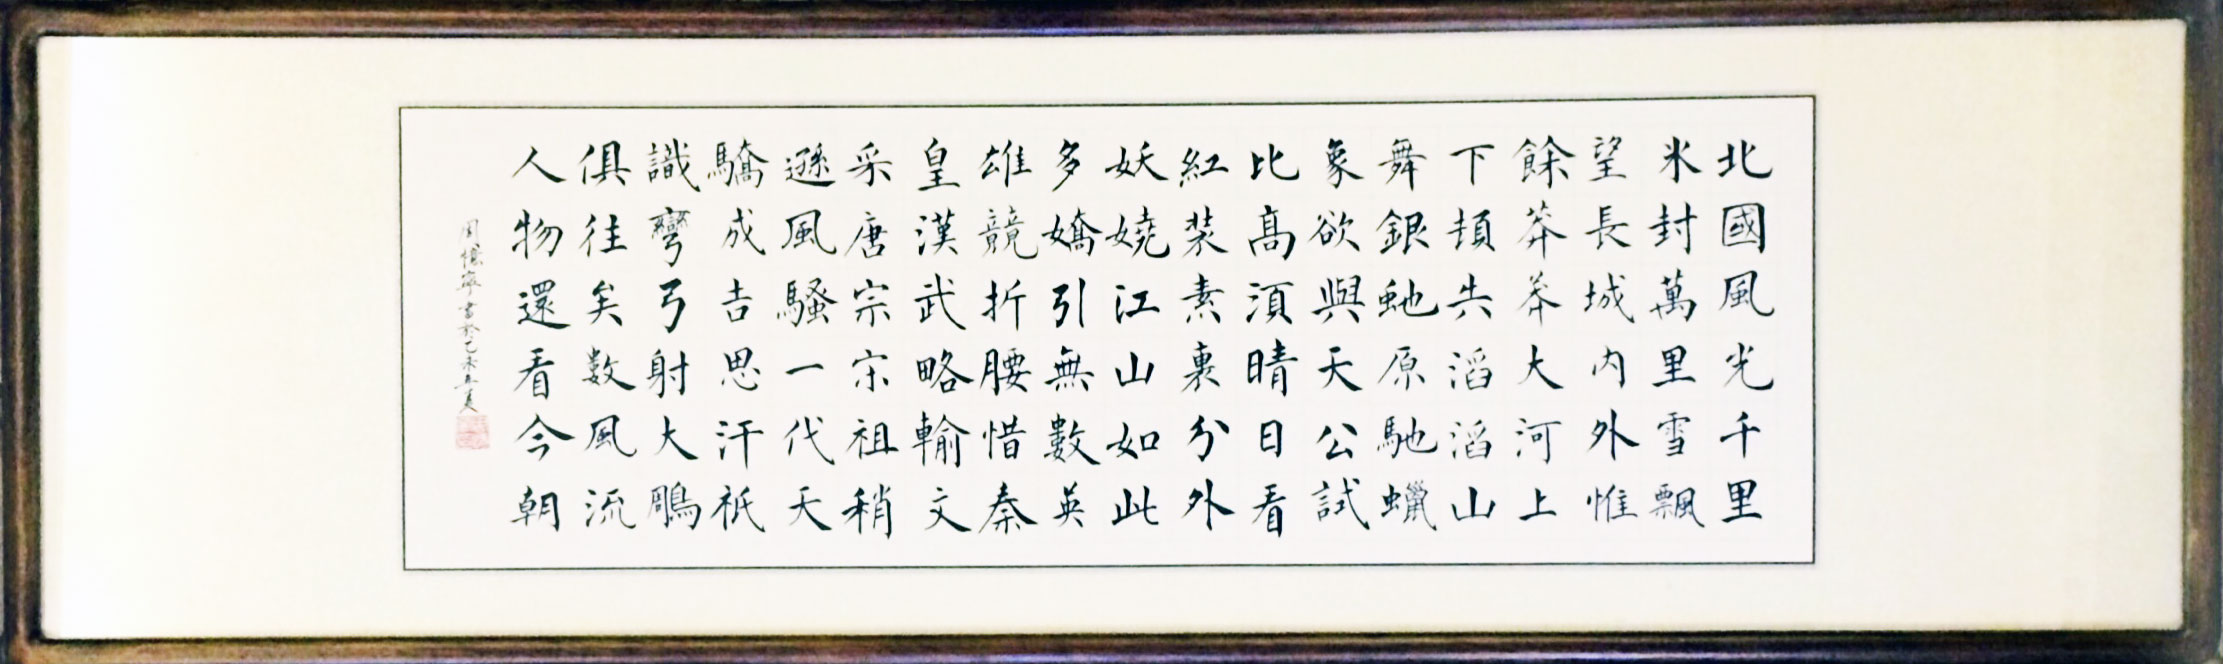 北國風光千里
氷封萬里雪飄
望長城内外惟
餘莽莽大河上
下頓失滔滔山
舞銀虵原馳蠟
象欲與天公試
比高須晴日看
紅裝素裹分外
妖嬈江山如此
多嬌引無數英
雄競折腰惜秦
皇漢武略輸文
采唐宗宋祖稍
遜風騷一代天
驕成吉思汗祇
識彎弓射大鵰
俱往矣數風流
人物還看今朝
周憶寧書於乙未年夏